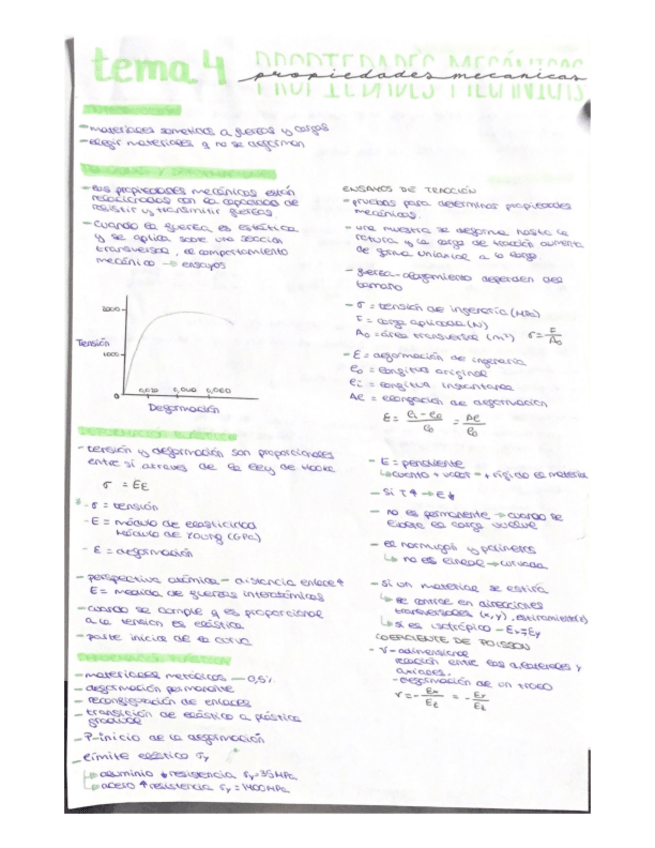 tema 4 propiedades mecanicas
PROPIEDADES MECÁNICAS
- materiales sometidos a fuerzas y cargas
- elegir materiales q no se deformen
- las propiedades mecánicas están
relacionadas con la capacidad de
resistir y/o transmitir fuerzas
- cuando la fuerza es estática
y se aplica sobre una sección
transversal, el comportamiento
mecánico → ensayos
Tensión
2000
1000
0
0,020 0,040 0,060
Deformación
DEFORMACIÓN ELÁSTICA
- tensión y deformación son proporcionales
entre sí através de la ley de Hooke
σ = Eε
- σ = tensión
- E = módulo de elasticidad
Módulo de Young (GPa)
- ε = deformación
- perspectiva atómica - distancia enlace ↑
E = medida de fuerzas interatómicas
- cuando se cumple q es proporcional
a la tensión es elástica
- parte inicial de la curva
DEFORMACIÓN PLÁSTICA
- materiales metálicos — 0,5%
- deformación permanente
- reconfiguración de enlaces
- transición de elástico a plástico
gradual
- P-inicio de la deformación
- límite elástico σy
↳ aluminio ↓ resistencia σy = 35 MPa
↳ acero ↑ resistencia σy = 1400 MPa
ENSAYOS DE TRACCIÓN
- pruebas para determinar propiedades
mecánicas.
- una muestra se deforma hasta la
rotura y la carga de tracción aumenta
de forma uniaxial a lo largo.
- fuerza-alargamiento dependen del
tamaño
- σ = tensión de ingeniería (MPa)
F = carga aplicada (N)
A₀ = área transversal (m²) σ = F/A₀
- ε = deformación de ingeniería
l₀ = longitud original
li = longitud instantánea
Δl = elongación de deformación
ε = (li - l₀)/l₀ = Δl/l₀
- E = pendiente
↳ cuanto + valor → + rígido es material
- Si T↑ → E↓
- no es permanente → cuando se
libera la carga vuelve
- el hormigón y polímeros
↳ no es lineal → curvada
- Si un material se estira
↳ se contrae en direcciones
transversales (x,y), estiramiento(z)
↳ si es isotrópico - Ex = Ey
COEFICIENTE DE POISSON
- ν - adimensional
relación entre las laterales y
axiales.
- deformación de un trozo
ν = - εx/εz = - εy/εz